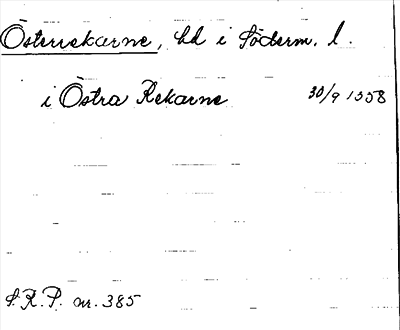 Österrekarne, hd i Söderm. l.
i Östra Rekarne 30/9 1358
S.R.P. nr. 385